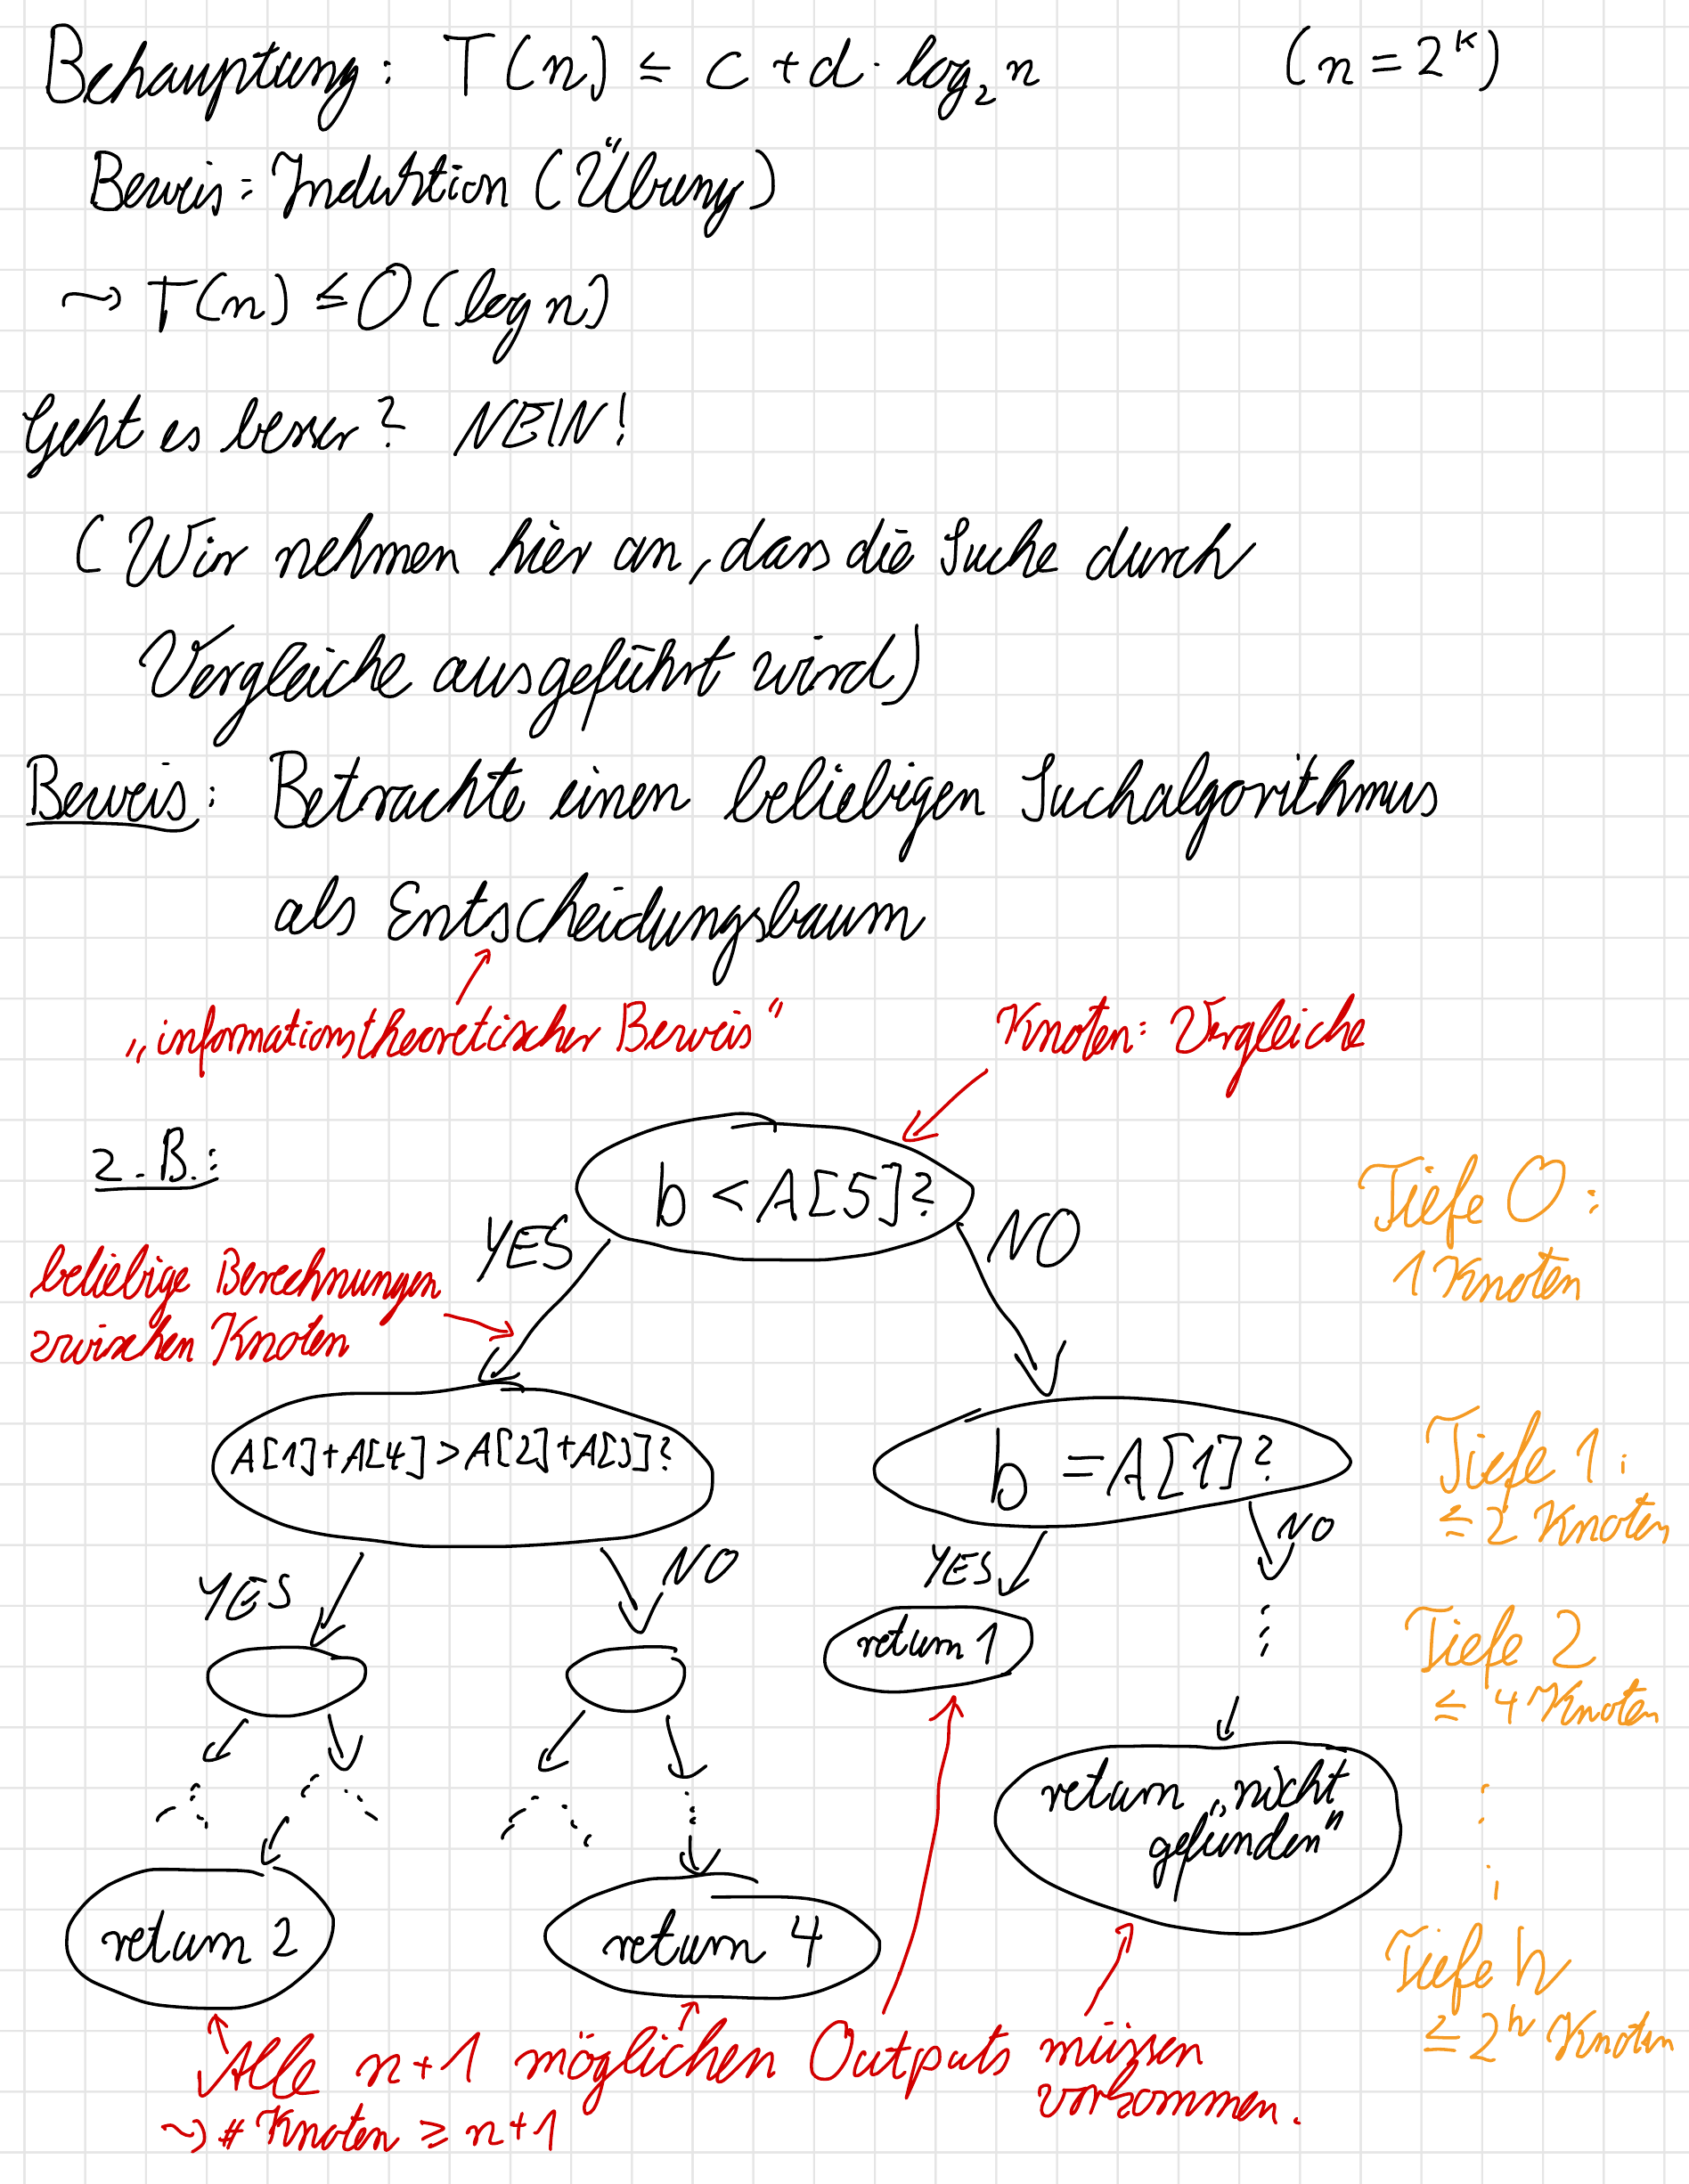 Behauptung: T(n) ≤ c + d · log₂ n (n = 2ᵏ)
Beweis: Induktion (Übung)
⇝ T(n) ≤ O(log n)
Geht es besser? NEIN!
(Wir nehmen hier an, dass die Suche durch
Vergleiche ausgeführt wird)
Beweis: Betrachte einen beliebigen Suchalgorithmus
als Entscheidungsbaum
„informationstheoretischer Beweis“
Knoten: Vergleiche
z.B.:
b < A[5]?
Tiefe 0:
1 Knoten
YES
NO
beliebige Berechnungen
zwischen Knoten
A[1]+A[4]>A[2]+A[3]?
b = A[1]?
Tiefe 1:
≤ 2 Knoten
YES
NO
YES
NO
return 1
Tiefe 2
≤ 4 Knoten
return „nicht
gefunden“
return 2
return 4
Tiefe h
≤ 2ʰ Knoten
Alle n+1 möglichen Outputs müssen
vorkommen.
⇝ # Knoten ≥ n+1